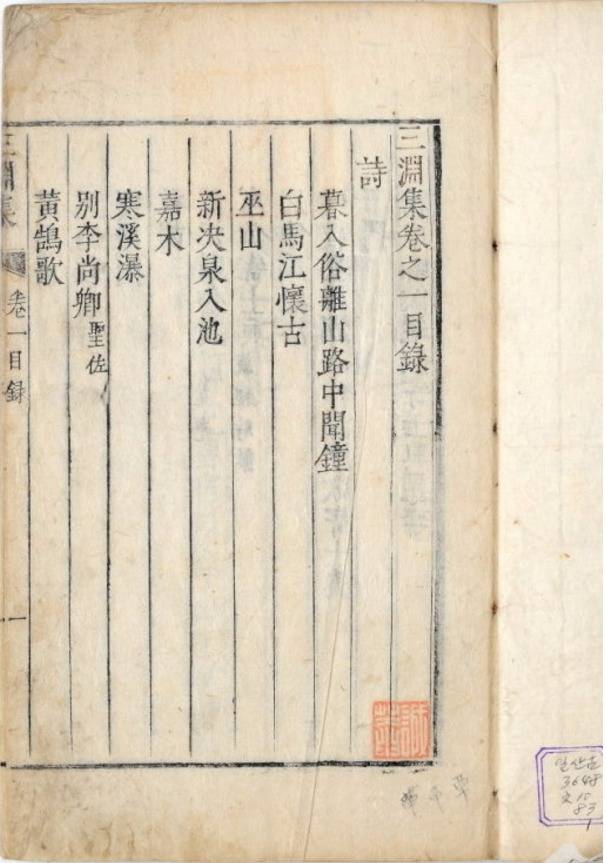 三淵集卷之一目錄
詩
暮入俗離山路中聞鐘
白馬江懷古
巫山
新决泉入池
嘉木
寒溪瀑
別李尚卿聖佐
黃鵠歌
三淵集 卷一目録 一
일산古
3648
文10
83